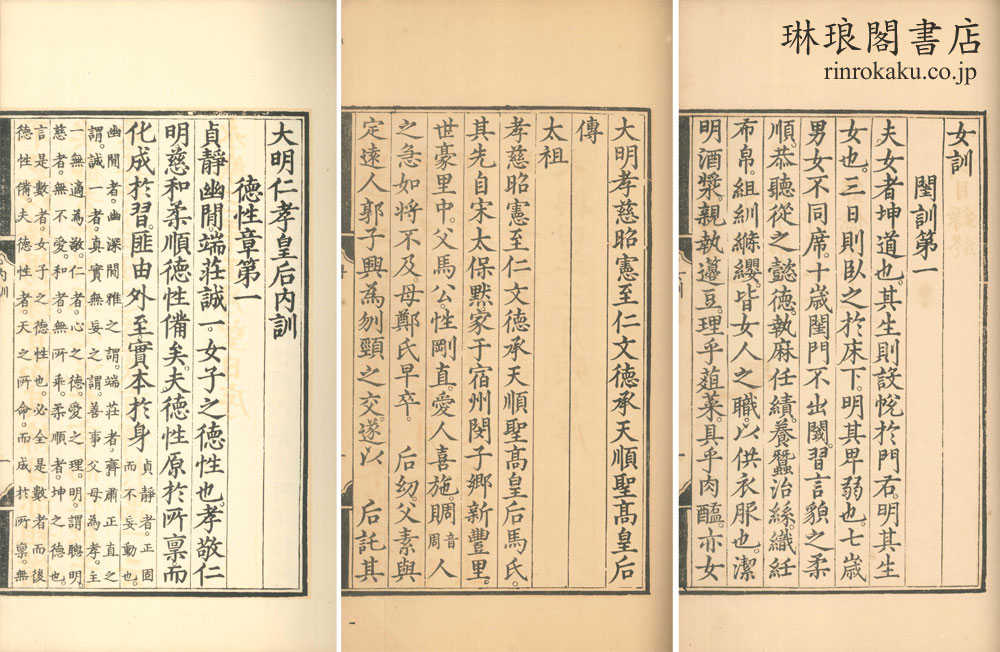 琳琅閣書店
rinrokaku.co.jp
女訓
閨訓第一
夫女者坤道也。其生則設帨於門右。明其生
女也。三日則臥之於床下。明其卑弱也。七歲
男女不同席。十歲閨門不出閾。習言貌之柔
順。恭聽從之懿德。執麻任績。養蠶治絲。織紝
布帛。組紃絛纓。皆女人之職。以供衣服也。潔
明酒漿。親執籩豆。理乎葅菜。具乎肉醢。亦女
大明孝慈昭憲至仁文德承天順聖高皇后
傳
太祖
孝慈昭憲至仁文德承天順聖高皇后馬氏。
其先自宋太保默家于宿州閔子鄉新豐里。
世豪里中。父馬公。性剛直。愛人喜施。賙音周人
之急如將不及母鄭氏早卒。 后幼。父素與
定遠人郭子興為刎頸之交。遂以 后託其
大明仁孝皇后內訓
德性章第一
貞靜幽閒。端莊誠一。女子之德性也。孝敬仁
明。慈和柔順。德性備矣。夫德性原於所禀。而
化成於習。匪由外至。實本於身
貞靜者。正固
而不妄動也。
幽閒者。幽深閒雅之謂。端莊者。齊肅正直之
謂。誠一者。真實無妄之謂。善事父母為孝。主
一無適為敬。仁者。心之德。愛之理。明。謂聰明。
慈者。無不愛。和者。無所乖。柔順者。坤之德也。
言是數者。女子之德性也。必全是數者。而後
德性備。夫德性者。天之所命。而成於所禀。無
內訓
一